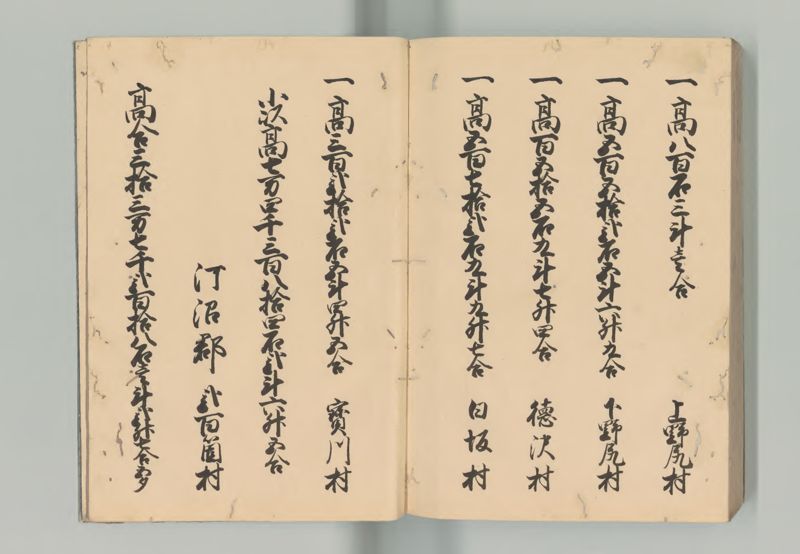 一高八百石三斗壱合 上野尻村
一高五百五拾弐石五斗六升九合 下野尻村
一高百五拾五石九斗七升四合 徳沢村
一高五百七拾弐石九斗九升七合 白坂村
一高三百弐拾弐石五斗四升五合 寳川村
小以高七万四千三百八拾四石弐斗六升五合
河沼郡 弐百箇村
高合三拾三万七千弐百拾八石三斗 升七合五夕